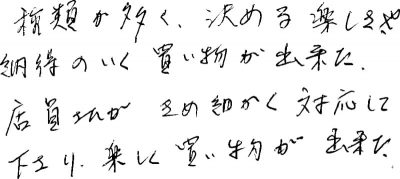 種類が多く、決める楽しさや
納得のいく買い物が出来た。
店員さんがきめ細かく対応して
下さり、楽しく買い物が出来た。